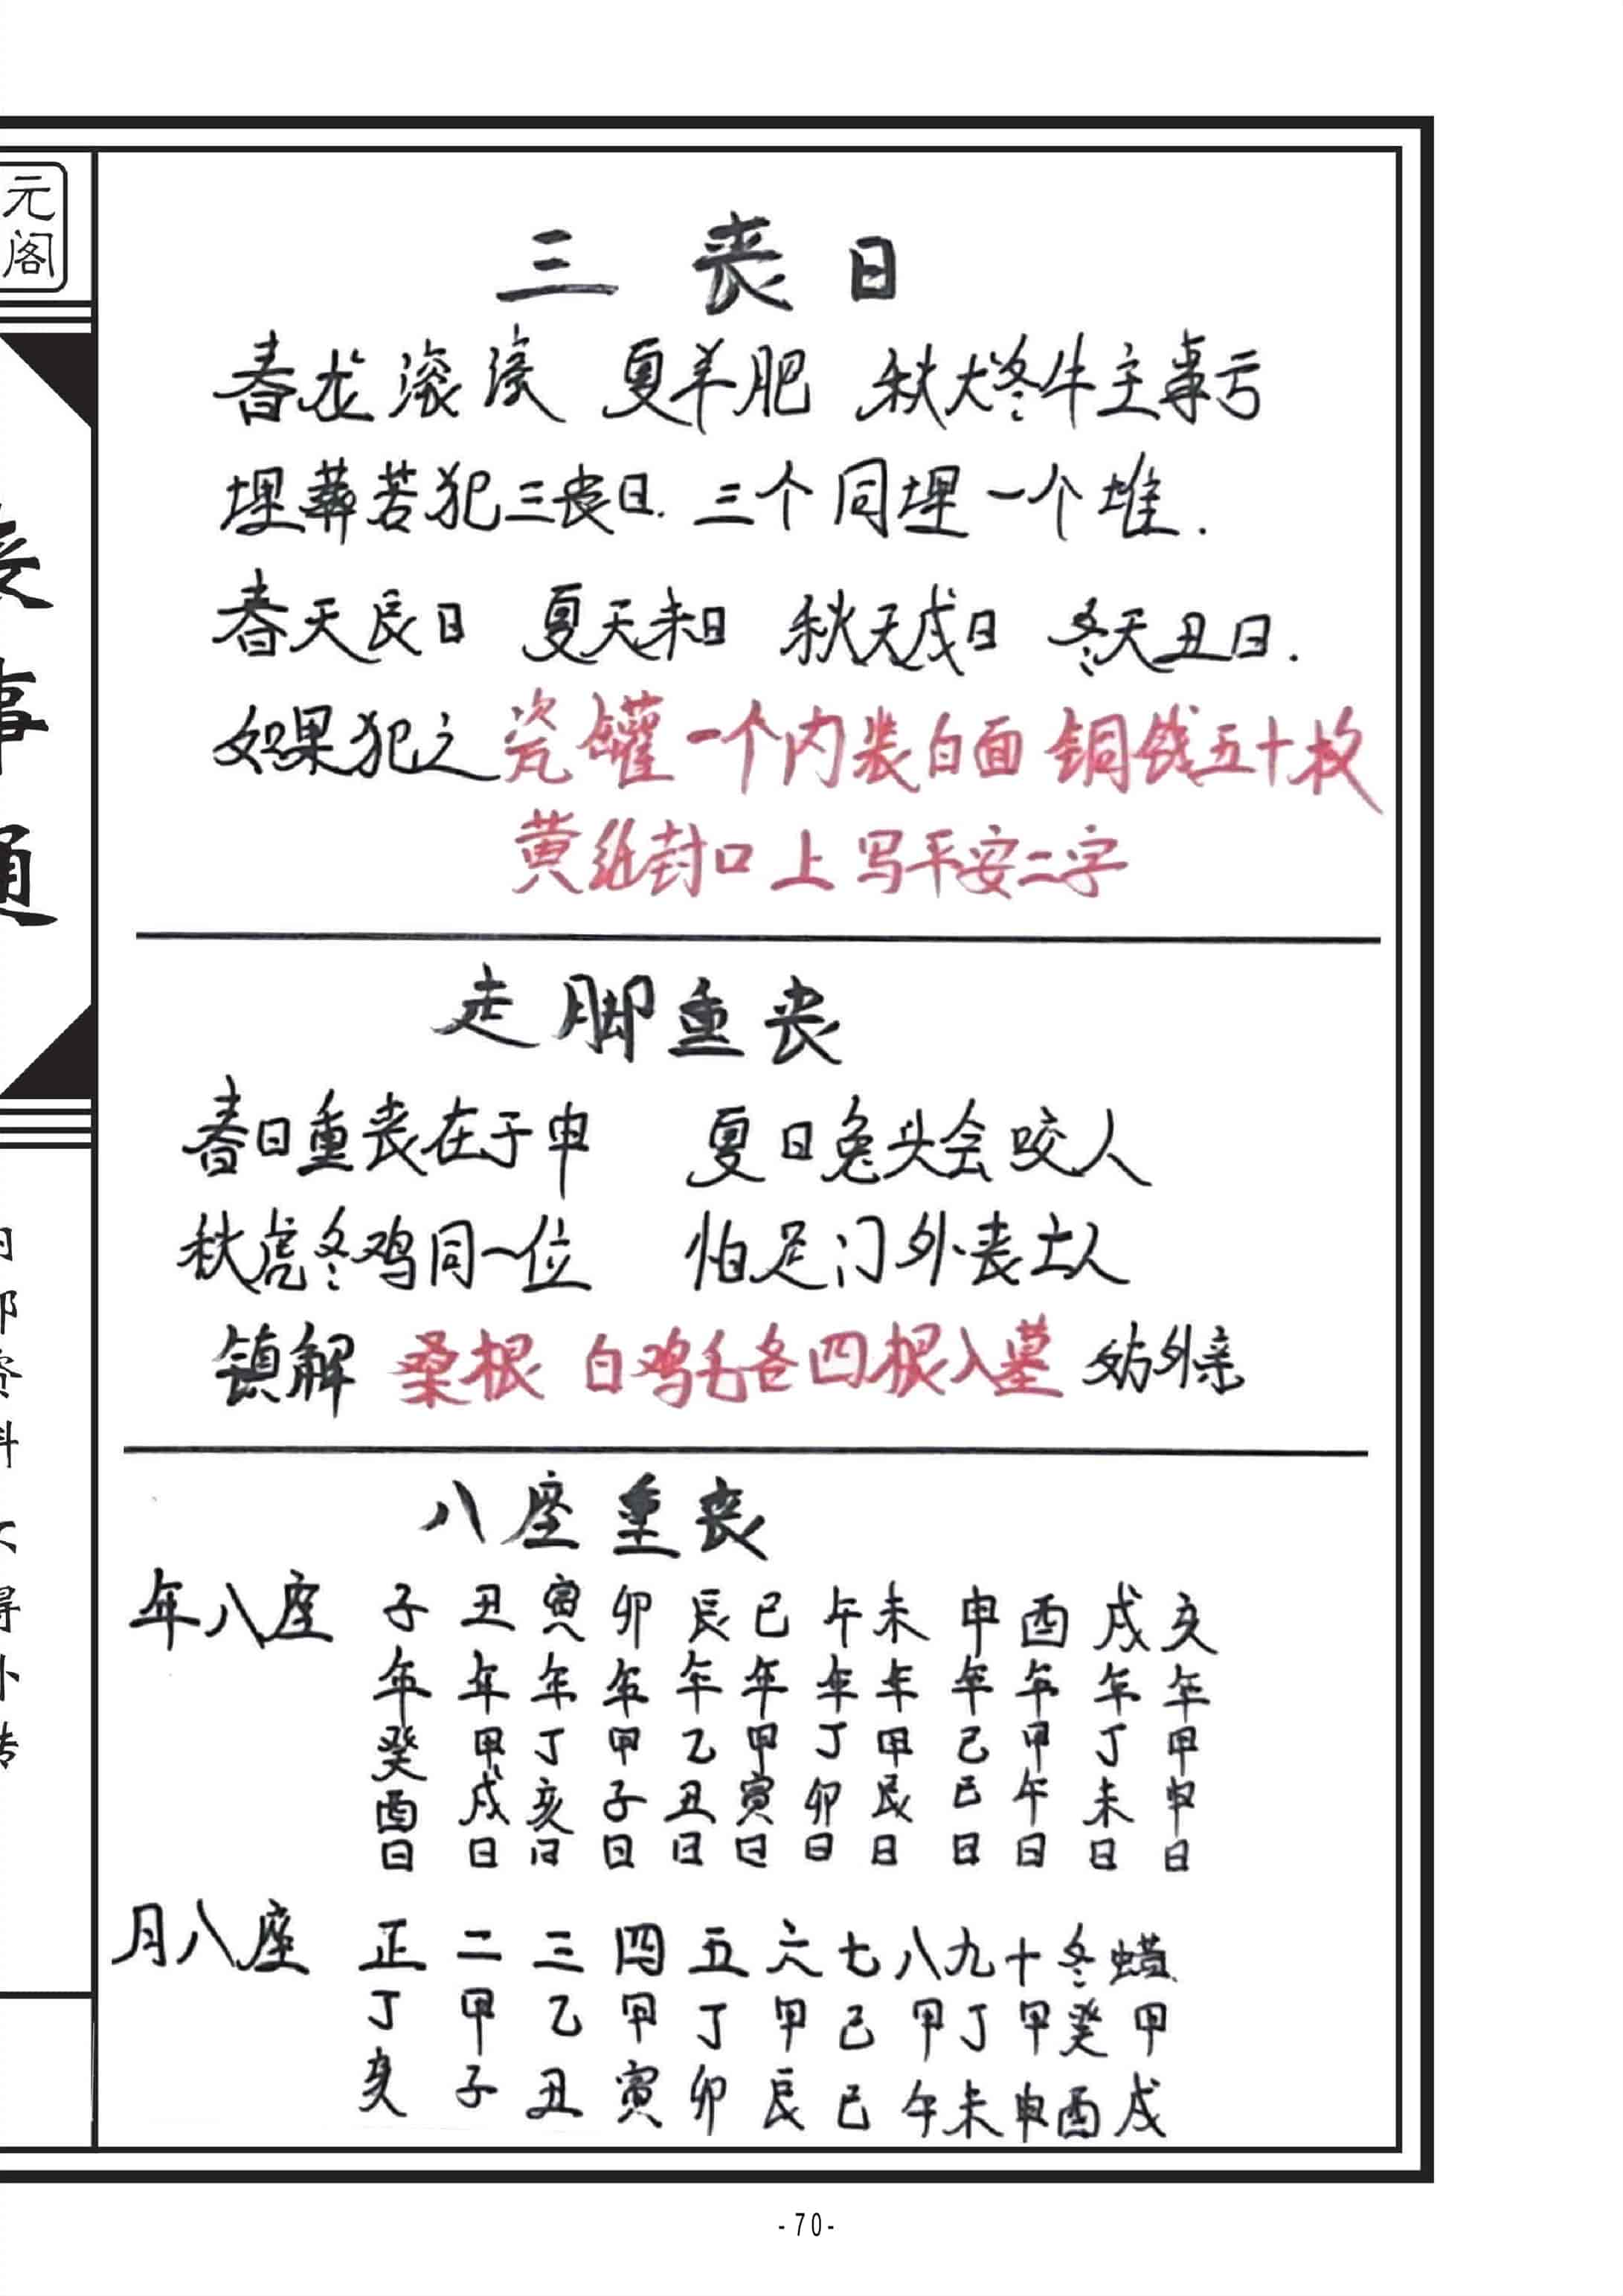 元阁
事
三丧日
春龙滚滚 夏羊肥 秋犬冬牛主事亏
埋葬若犯三丧日. 三个同埋一个堆.
春天辰日 夏天未日 秋天戌日 冬天丑日.
如果犯之瓷罐一个内装白面 铜钱五十枚
黄纸封口上写平安二字
走脚重丧
春日重丧在于申 夏日兔头会咬人
秋虎冬鸡同一位 怕足门外丧土人
镇解 桑根 白鸡毛各四根入墓 妨外亲
八座重丧
年八座 子 丑 寅 卯 辰 巳 午 未 申 酉 戌 亥
年 年 年 年 年 年 年 年 年 年 年 年
癸 甲 丁 甲 乙 甲 丁 甲 己 甲 丁 甲
酉 戌 亥 子 丑 寅 卯 辰 巳 午 未 申
日 日 日 日 日 日 日 日 日 日 日 日
月八座 正 二 三 四 五 六 七 八 九 十 冬 蜡
丁 甲 乙 甲 丁 甲 己 甲 丁 甲 癸 甲
亥 子 丑 寅 卯 辰 巳 午 未 申 酉 戌
-70-